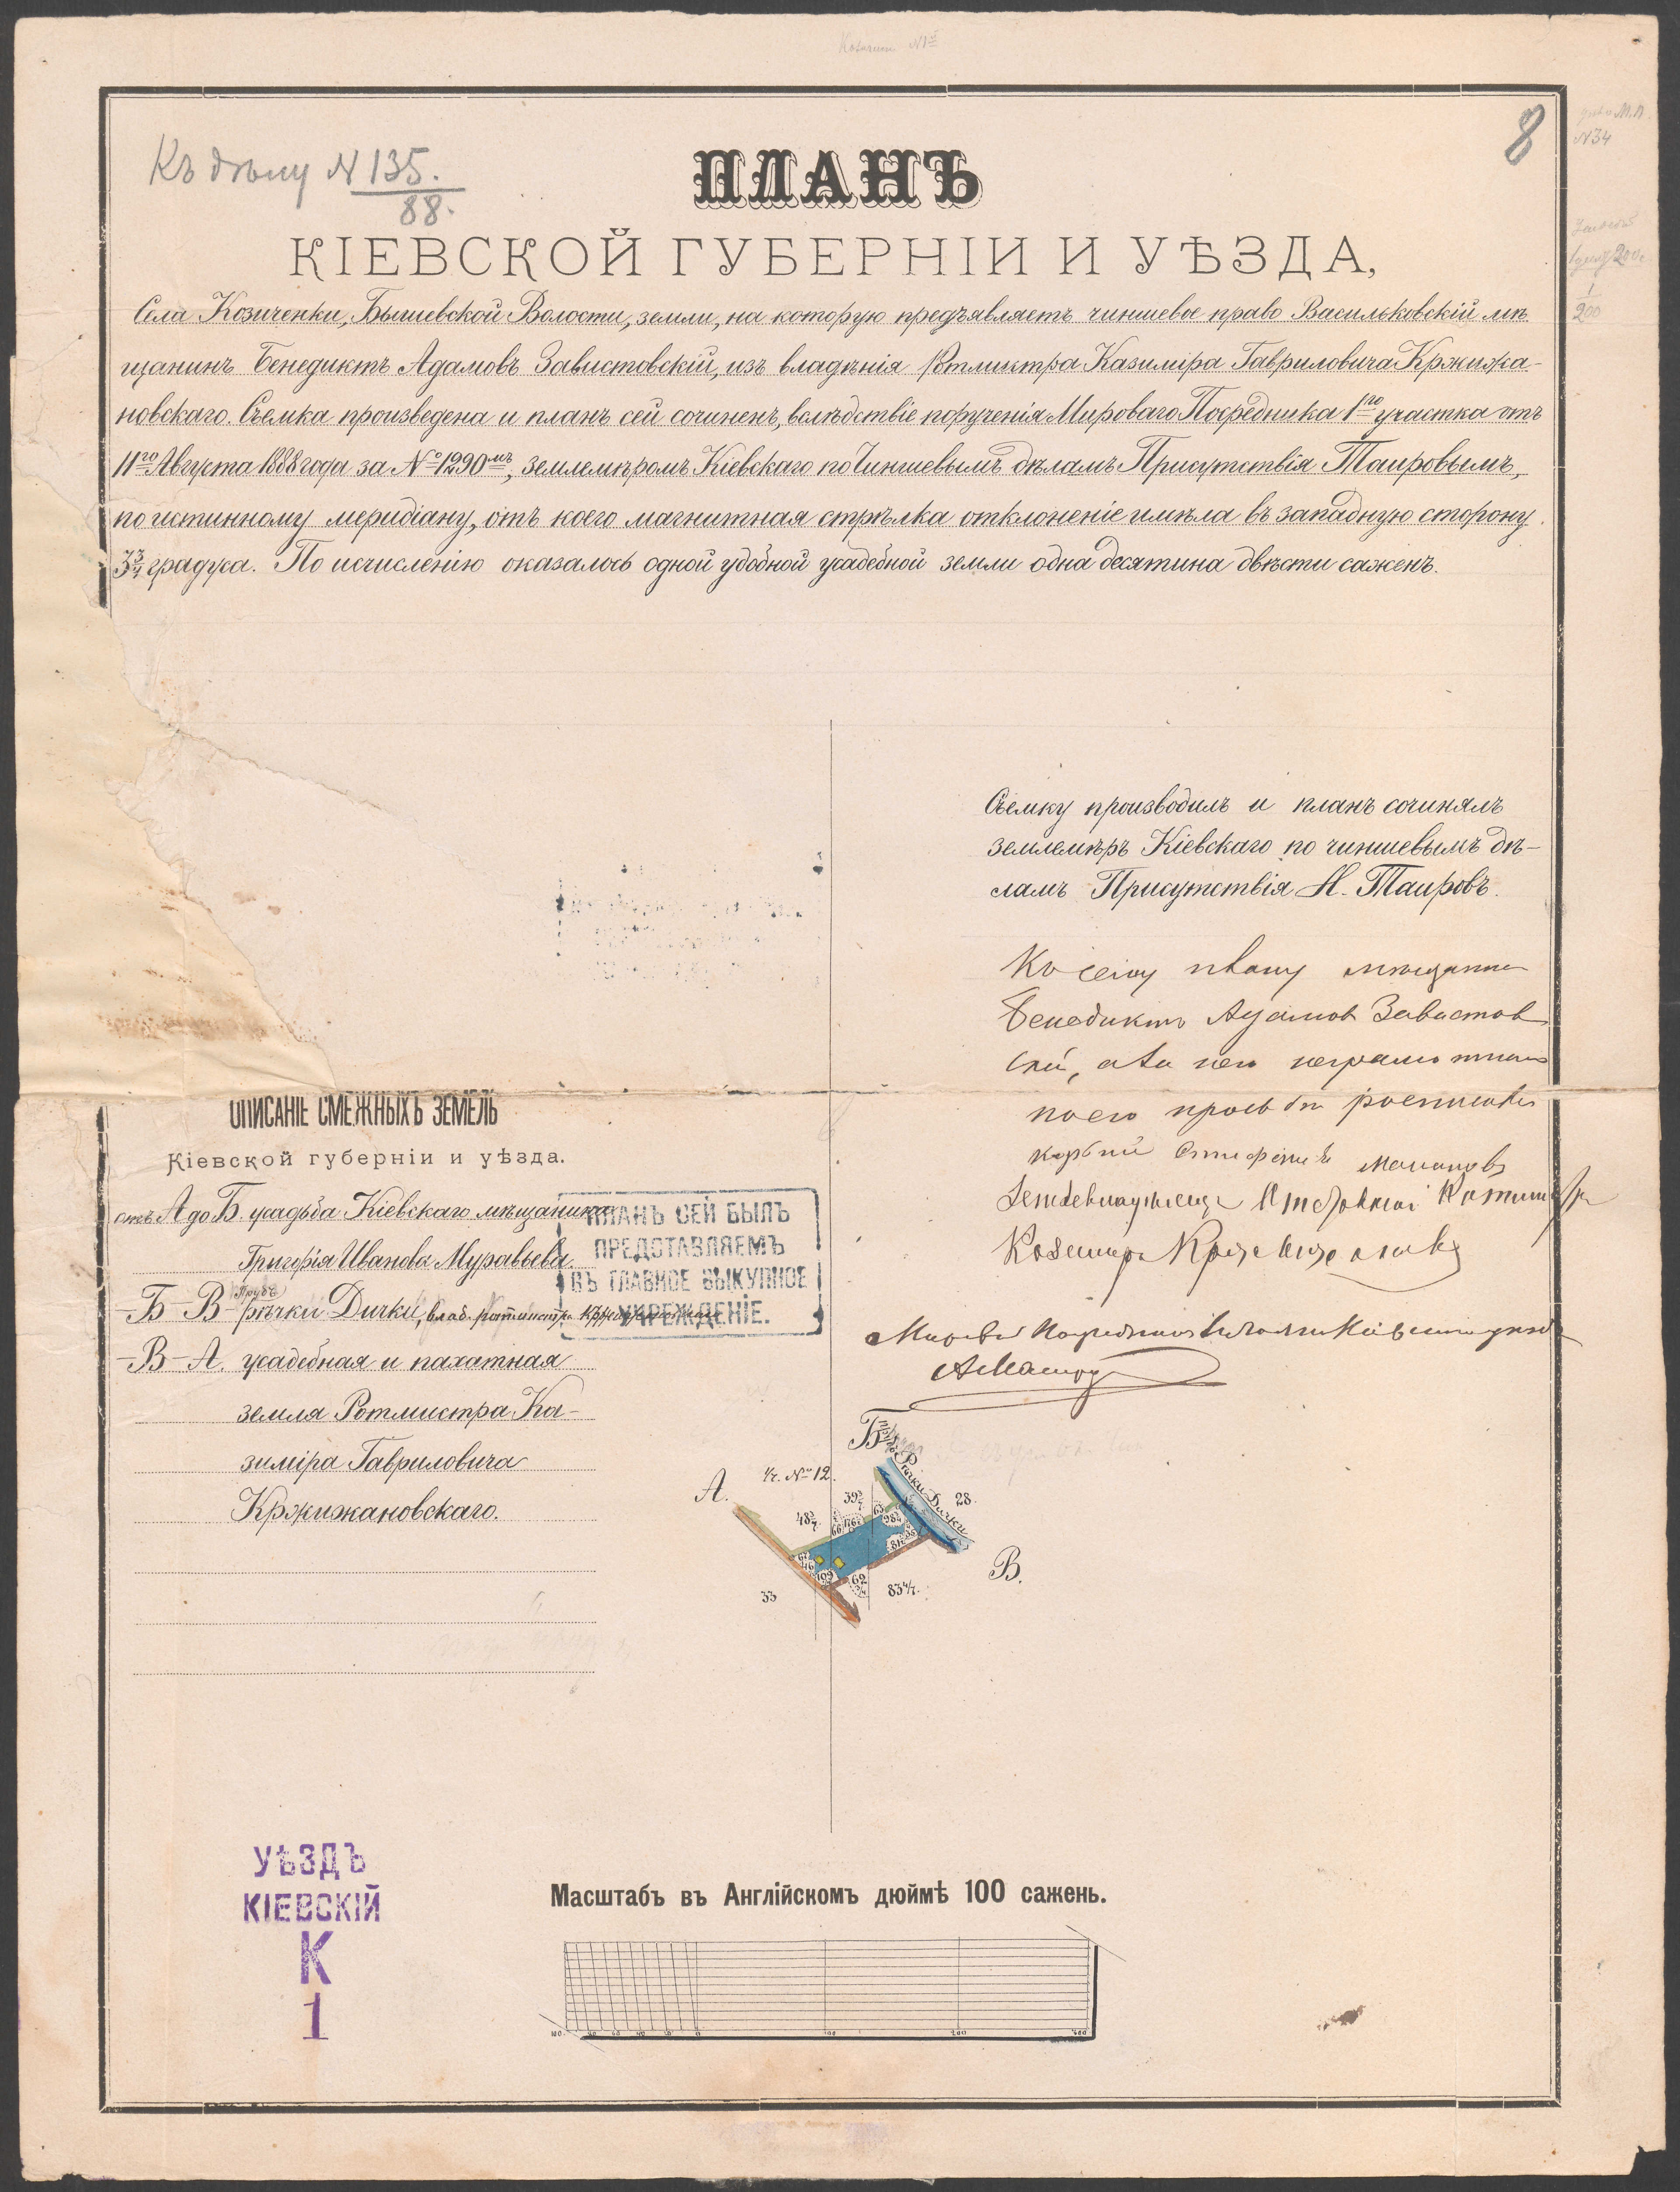 Къ дѣлу N 135.
88.
8
N34
200
ПЛАНЪ
КІЕВСКОЙ ГУБЕРНІИ И УѢЗДА,
Села Козиченки, Бышевской Волости, земли, на которую предъявляетъ чиншевое право Васильковскій мѣ
щанинъ Бенедиктъ Адамовъ Завистовскій, изъ владѣнія Ротмистра Казиміра Гавриловича Кржижа-
новскаго. Съемка произведена и планъ сей сочиненъ, вслѣдствіе порученія Мироваго Посредника 1го участка отъ
11го Августа 1888 года за № 1290мъ, землемѣромъ Кіевскаго по Чиншевымъ дѣламъ Присутствія Таировымъ,
по истинному меридіану, отъ коего магнитная стрѣлка отклоненіе имѣла въ западную сторону
3¾ градуса. По исчисленію оказалось одной удобной усадебной земли одна десятина двѣсти саженъ.
Съемку производилъ и планъ сочинялъ
землемѣръ Кіевскаго по чиншевымъ дѣ-
ламъ Присутствія Н. Таировъ.
Къ сему плану мѣщанинъ
Бенедиктъ Адамов Завистов
скій, а за него неграмотнаго
по его прозбѣ росписался
Казимиръ
Мировой Посредникъ
ОПИСАНІЕ СМЕЖНЫХЪ ЗЕМЕЛЬ
Кіевской губерніи и уѣзда.
отъ А до Б усадьба Кіевскаго мѣщанина
Григорія Иванова Муравьева.
Прудъ
Б—В—рѣчки Дички, влад. ротмистра Кржижановскаго
В—А. усадебная и пахатная
земля Ротмистра Ка-
зиміра Гавриловича
Кржижановскаго.
ПЛАНЪ СЕЙ БЫЛЪ
ПРЕДСТАВЛЯЕМЪ
ВЪ ГЛАВНОЕ ВЫКУПНОЕ
УЧРЕЖДЕНІЕ.
Б
Рѣчки Дички
А.
Уч. № 12.
28
В.
33
УѢЗДЪ
КІЕВСКІЙ
К
1
Масштабъ въ Англійскомъ дюймѣ 100 сажень.
100 80 60 40 20 0 100 200 300